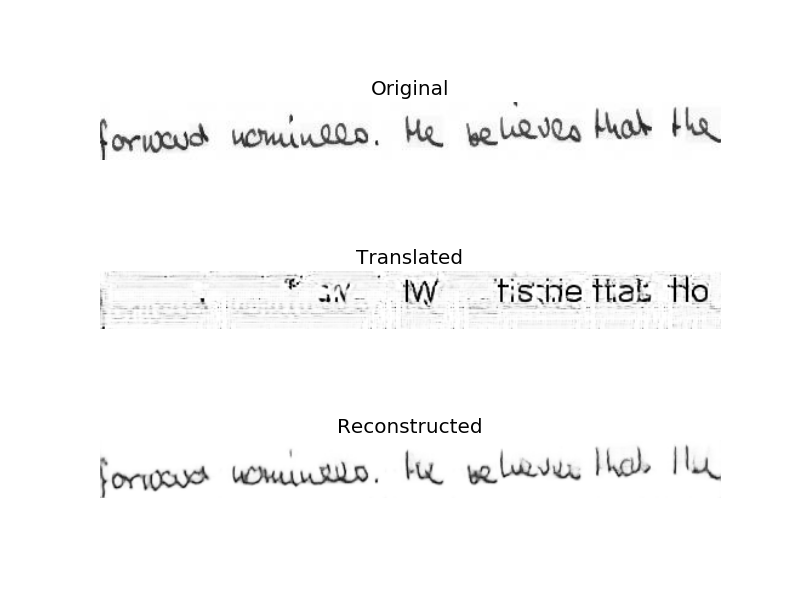 Original
forward nominees. He believes that the
Translated
IW tis:ne ttab Ho
Reconstructed
forward nominees. He believes that the